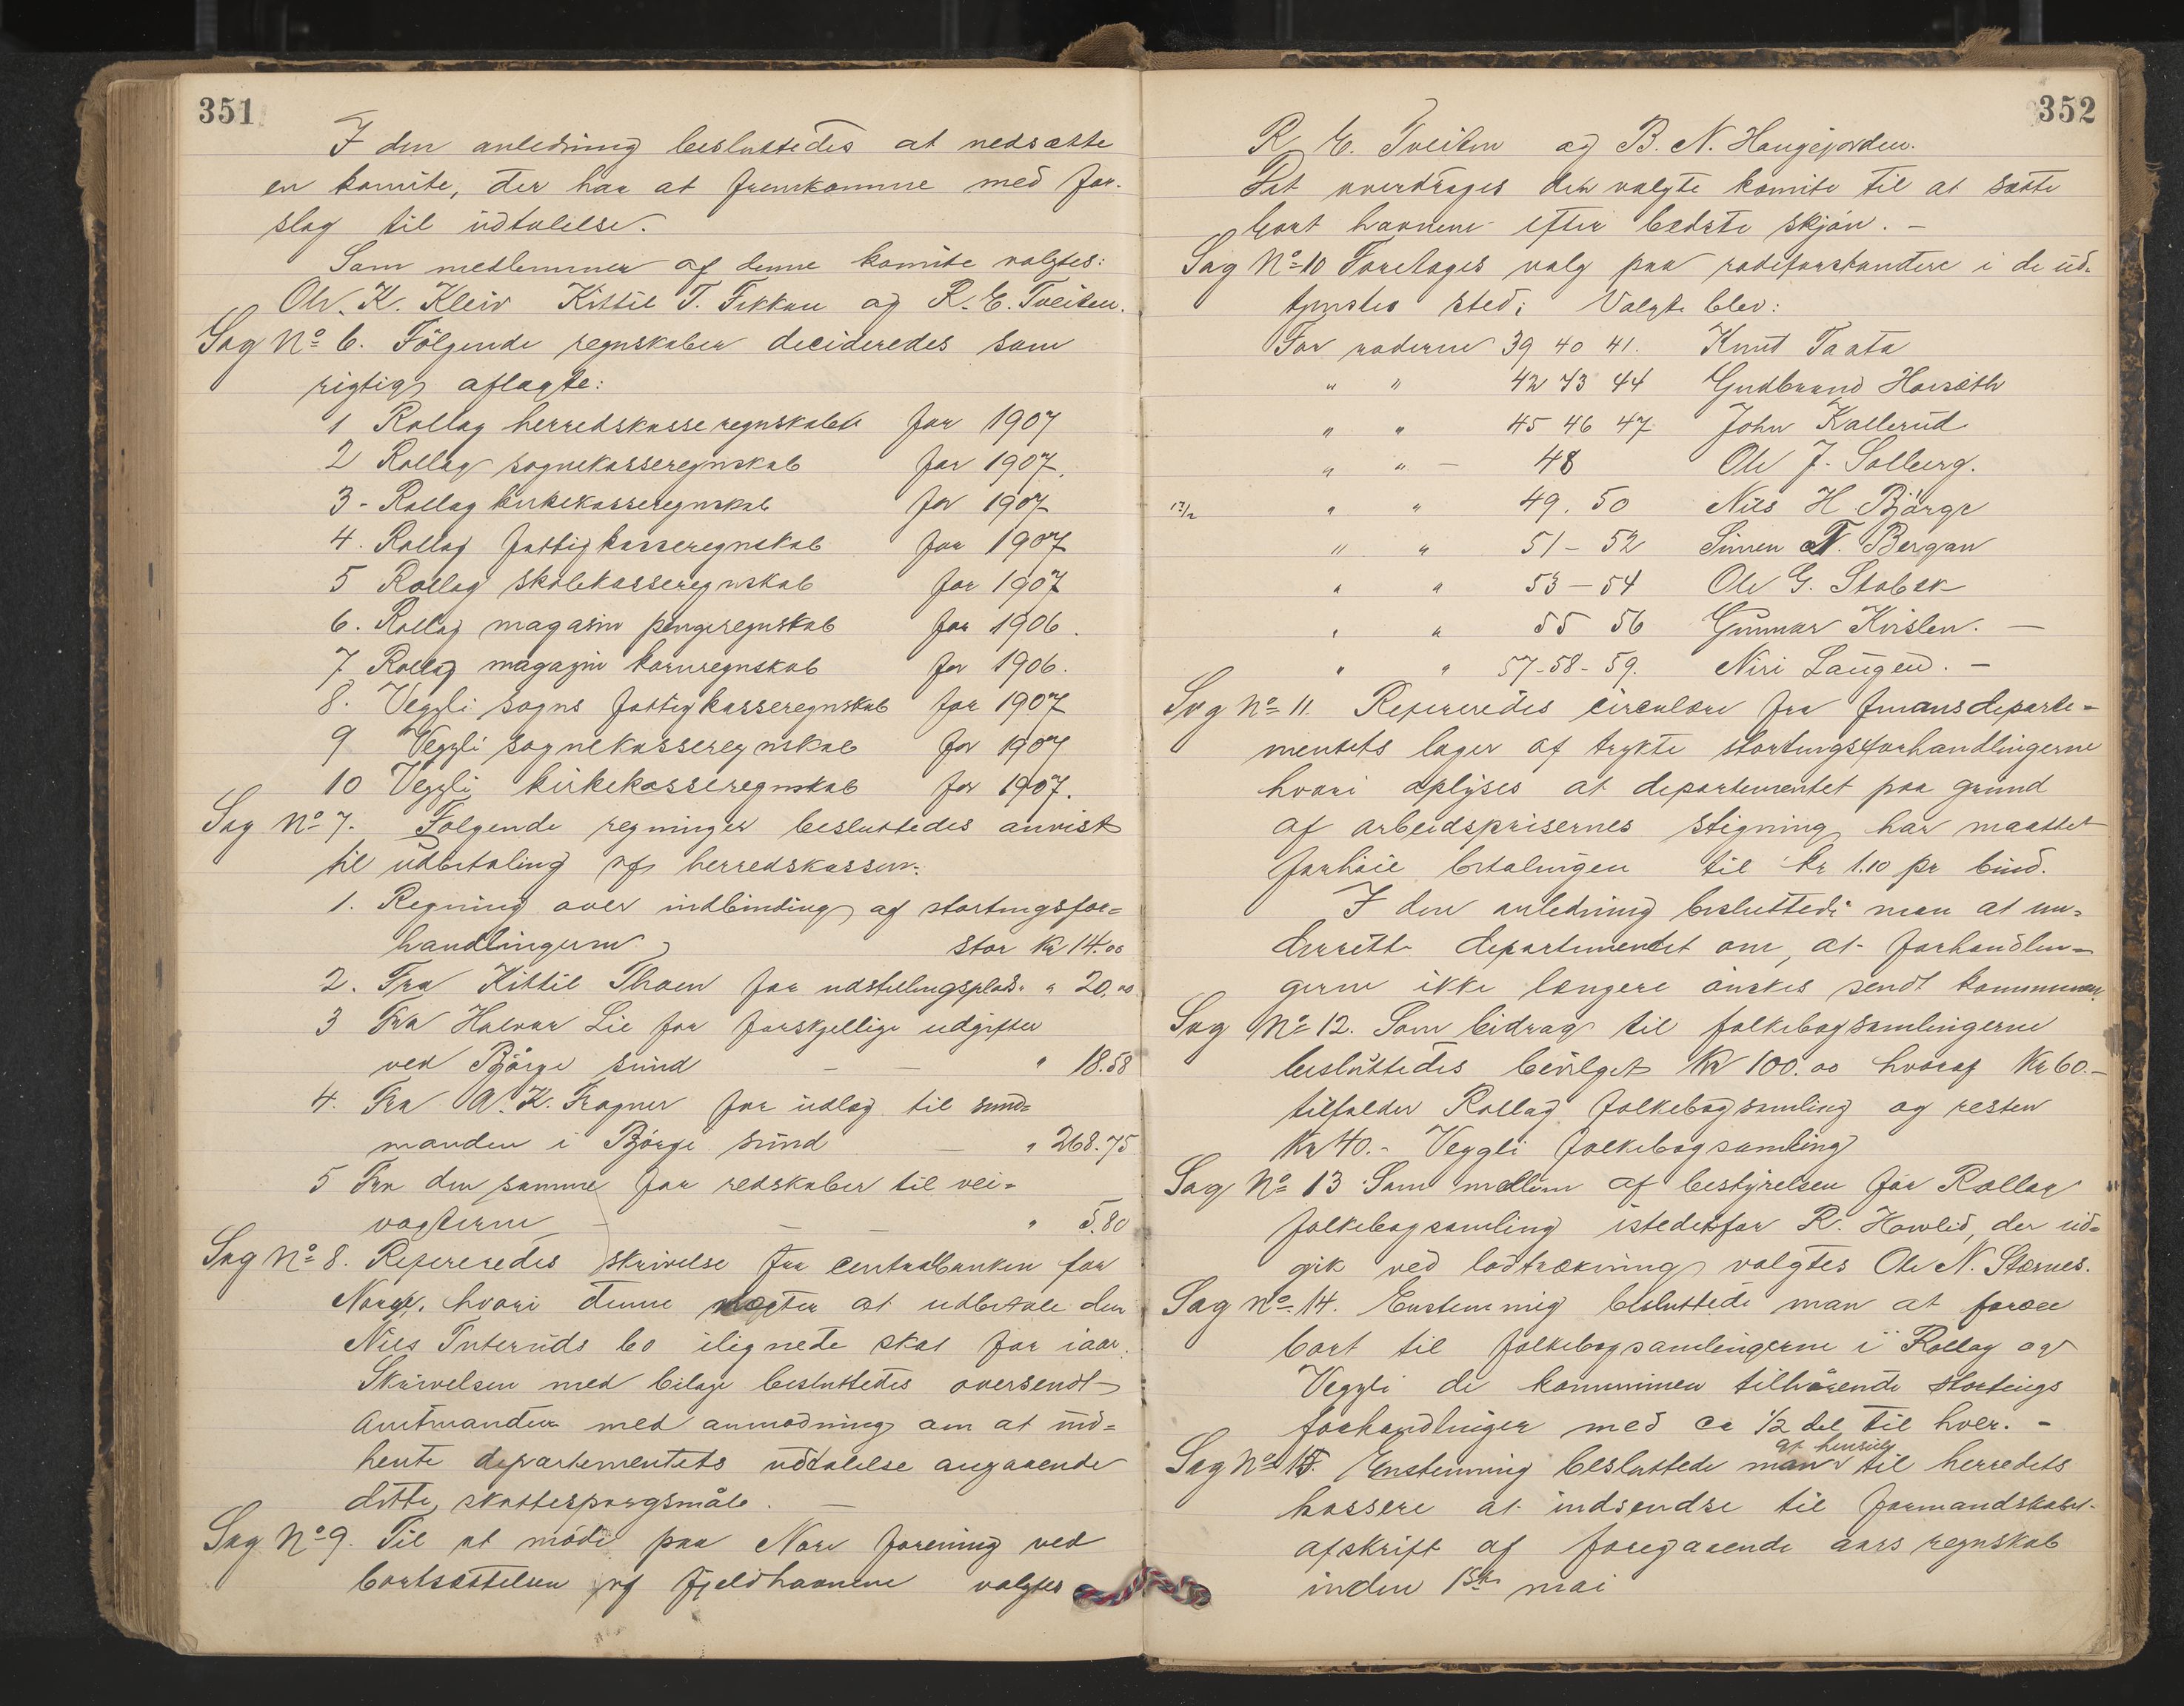 351
I den anledning besluttedes at nedsætte
en komite, der har at fremkomme med for-
slag til udtalelse.
Som medlemmer af denne komite valgtes:
Ole K. Kleiv Kittil T. Fekkan og R. E. Tveiten.
Sag No 6. Følgende regnskaber decideredes som
rigtig aflagte:
1 Rollag herredskasseregnskab for 1907
2 Rollag sognekasseregnskab for 1907.
3 - Rollag kirkekasseregnskab for 1907
4. Rollag fattigkasseregnskab for 1907
5 Rollag skolekasseregnskab for 1907
6. Rollag magasin pengeregnskab for 1906.
7 Rollag magazin kornregnskab for 1906.
8. Veggli sogns fattigkasseregnskab for 1907
9 Veggli sognekasseregnskab for 1907
10 Veggli kirkekasseregnskab for 1907.
Sag No 7. Følgende regninger besluttedes anvist
til udbetaling af herredskassen:
1. Regning over indbinding af stortingsfor=
handlingerne stor kr 14.00
2. Fra Kittil Thoen for udstillingsplads " " 20.00
3 Fra Halvor Lie for forskjellige udgifter
ved Bjørge sund — — " 18.58
4. Fra A. K. Fragner for udlæg til sund=
manden i Bjørge sund — " 268.75
5 Fra den samme for redskaber til vei=
vogterne — — — " 5.80
Sag No 8. Refereredes skrivelse fra centralbanken for
Norge, hvori denne nægter at udbetale den
Nils Traaeruds bo ilignede skat for iaar.
Skrivelsen med bilage besluttedes oversendt
Amtmanden med anmodning om at ind=
hente departementets udtalelse angaaende
dette skattespørgsmål. —
Sag No 9. Til at møde paa Nore forening ved
bortsættelsen af fjeldhavnene valgtes
352
R. E. Tveiten og B. N. Haugejorden.
Det overdrages den valgte komite til at sætte
bort havnene efter bedste skjøn. —
Sag No 10 Foretages valg paa rodeforstandere i de ud-
tjenstes sted; Valgte blev:
For roderne 39 40 41. Knut Taata
" " 42 43 44 Gudbrand Horsæth
" " 45 46 47 John Kallerud
" " — 48 Ole J. Solberg.
12/2 " " 49. 50 Nils H Bjørge
" " 51 - 52 Simen N. Bergan
" " 53 — 54 Ole G. Stabek
" " 55 56 Gunnar Kvislen. —
" " 57-58-59. Niri Laugen. —
Sag No 11. Refereredes circulære fra finansdeparte=
mentets lager af trykte stortingsforhandlingerne
hvori oplyses at departementet paa grund
af arbeidsprisernes stigning har maattet
forhøie betalingen til kr 1.10 pr bind.
I den anledning besluttede man at un=
derrette departementet om, at forhandlin=
gerne ikke længere ønskes sendt kommunen.
Sag No 12. Som bidrag til folkebogsamlingerne
besluttedes bevilget Kr 100.00 hvoraf Kr 60.—
tilfalder Rollag folkebogsamling og resten
Kr 40.- Veggli folkebogsamling
Sag No 13 Som medlem af bestyrelsen for Rollag
folkebogsamling istedetfor R. Howlid, der ud=
gik ved lodtrækning valgtes Ole N. Stærnes.
Sag No 14. Enstemmig besluttede man at foræe
bort til folkebogsamlingerne i Rollag og
Veggli de kommunen tilhørende stortings
forhandlinger med ca 1/2 del til hver. -
Sag No 15. Enstemmig besluttede man at henstille til herredets
kassere at indsendse til formandskabet
afskrift af foregaaende aars regnskab
inden 15de mai